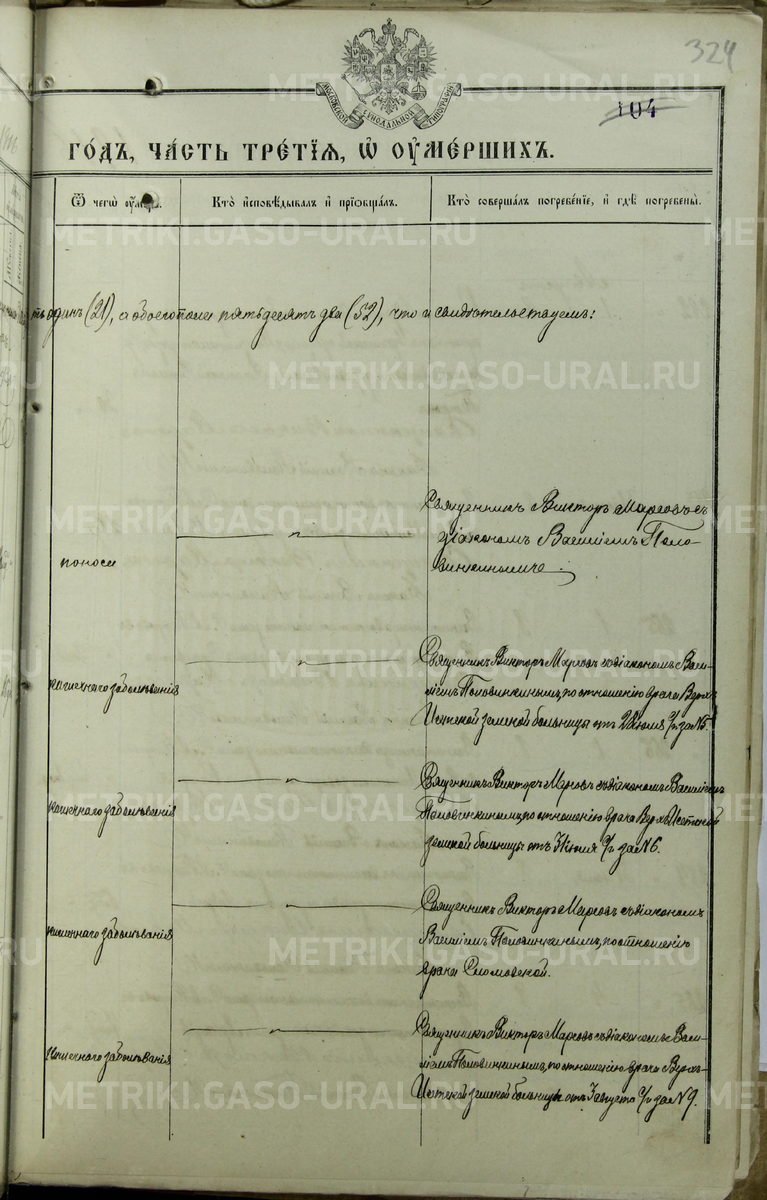 324
104
МОСКОВСКОЙ СѴНОДАЛЬНОЙ ТИПОГРАФІИ
METRIKI.GASO-URAL.RU
го́дъ, ча́сть тре́тїѧ, ѡ҆ ᲂу҆ме́ршихъ.
Ѿ чегѡ̀ ᲂу҆́меръ.
Кто̀ и҆сповѣ́дывалъ и҆ прїѡбща́лъ.
Кто̀ соверша́лъ погребе́нїе, и҆ гдѣ̀ погребены̀.
ть одинъ (21), а обоего пола пятьдесятъ два (52), что и свидѣтельствуемъ:
поноса
Священникъ Викторъ Марсовъ съ
діакономъ Василіемъ Поло-
винкинымъ.
кишечнаго заболѣванія
Священникъ Викторъ Марсовъ съ діакономъ Васи-
ліемъ Половинкинымъ, по отношенію врача Верхъ-
Исетской земской больницы отъ 28 іюля с/г за № 5.
кишечнаго заболѣванія
Священникъ Викторъ Марсовъ съ діакономъ Василіемъ
Половинкинымъ, по отношенію врача Верхъ-Исетской
земской больницы отъ іюля с/г за № 6.
кишечнаго заболѣванія
Священникъ Викторъ Марсовъ съ діакономъ
Василіемъ Половинкинымъ, по отношенію
врача
кишечнаго заболѣванія
Священникъ Викторъ Марсовъ съ діакономъ Васи-
ліемъ Половинкинымъ, по отношенію врача Верхъ-
Исетской земской больницы отъ 3 августа с/г за № 9.